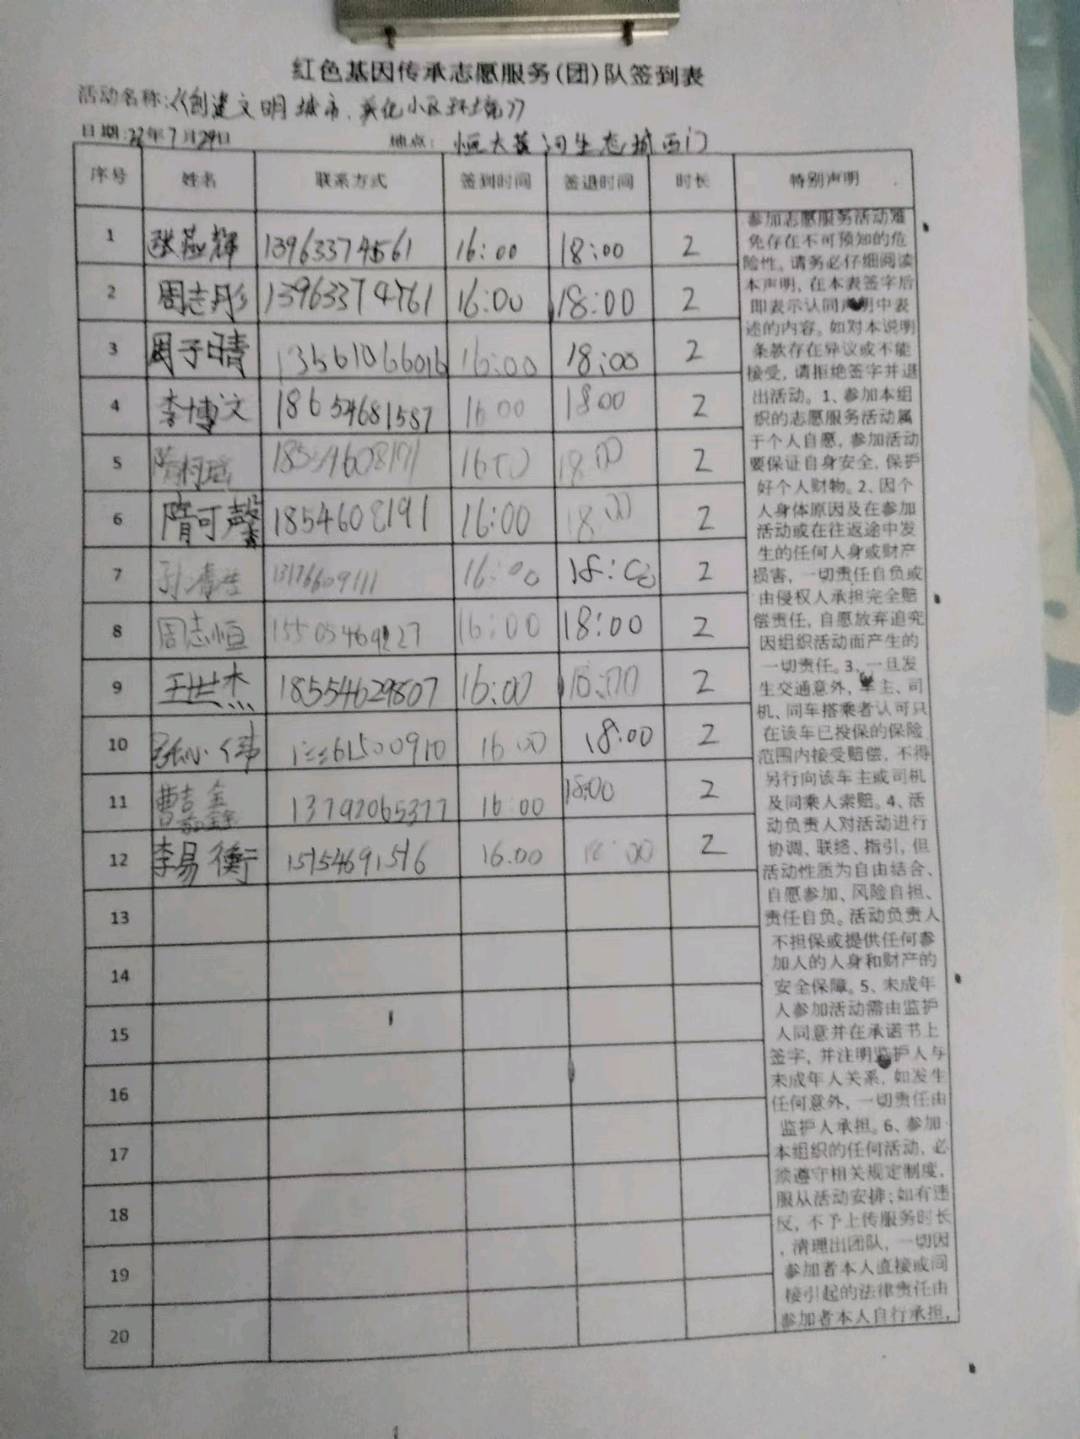 红色基因传承志愿服务(团)队签到表
活动名称:《创建文明城市、美化小区环境》
日期:22年7月29日 地点: 恒大黄河生态城西门
序号 姓名 联系方式 签到时间 签退时间 时长 特别声明
1 张燕辉 13963374561 16:00 18:00 2
2 周志彤 13963374761 16:00 18:00 2
3 周子晴 13561066016 16:00 18:00 2
4 李博文 18654681587 16 00 18 00 2
5 18554608191 16:00 18:00 2
6 隋可馨 1854608191 16:00 18:00 2
7 13176609111 16:00 18:00 2
8 周志恒 15505469227 16:00 18:00 2
9 王世杰 18554629807 16:00 18:00 2
10 张小伟 61500910 16 00 18:00 2
11 曹嘉鑫 13792065377 16:00 18:00 2
12 李易衡 15154691516 16.00 18:00 2
13
14
15
16
17
18
19
20
参加志愿服务活动难
免存在不可预知的危
险性。请务必仔细阅读
本声明,在本表签字后
即表示认同声明中表
述的内容。如对本说明
条款存在异议或不能
接受,请拒绝签字并退
出活动。1、参加本组
织的志愿服务活动属
于个人自愿,参加活动
要保证自身安全,保护
好个人财物。2、因个
人身体原因及在参加
活动或在往返途中发
生的任何人身或财产
损害,一切责任自负或
由侵权人承担完全赔
偿责任,自愿放弃追究
因组织活动而产生的
一切责任。3、一旦发
生交通意外,车主、司
机、同车搭乘者认可只
在该车已投保的保险
范围内接受赔偿,不得
另行向该车主或司机
及同乘人索赔。4、活
动负责人对活动进行
协调、联络、指引,但
活动性质为自由结合、
自愿参加、风险自担、
责任自负。活动负责人
不担保或提供任何参
加人的人身和财产的
安全保障。5、未成年
人参加活动需由监护
人同意并在承诺书上
签字,并注明监护人与
未成年人关系,如发生
任何意外,一切责任由
监护人承担。6、参加
本组织的任何活动,必
须遵守相关规定制度,
服从活动安排;如有违
反,不予上传服务时长
,清理出团队,一切因
参加者本人直接或间
接引起的法律责任由
参加者本人自行承担,